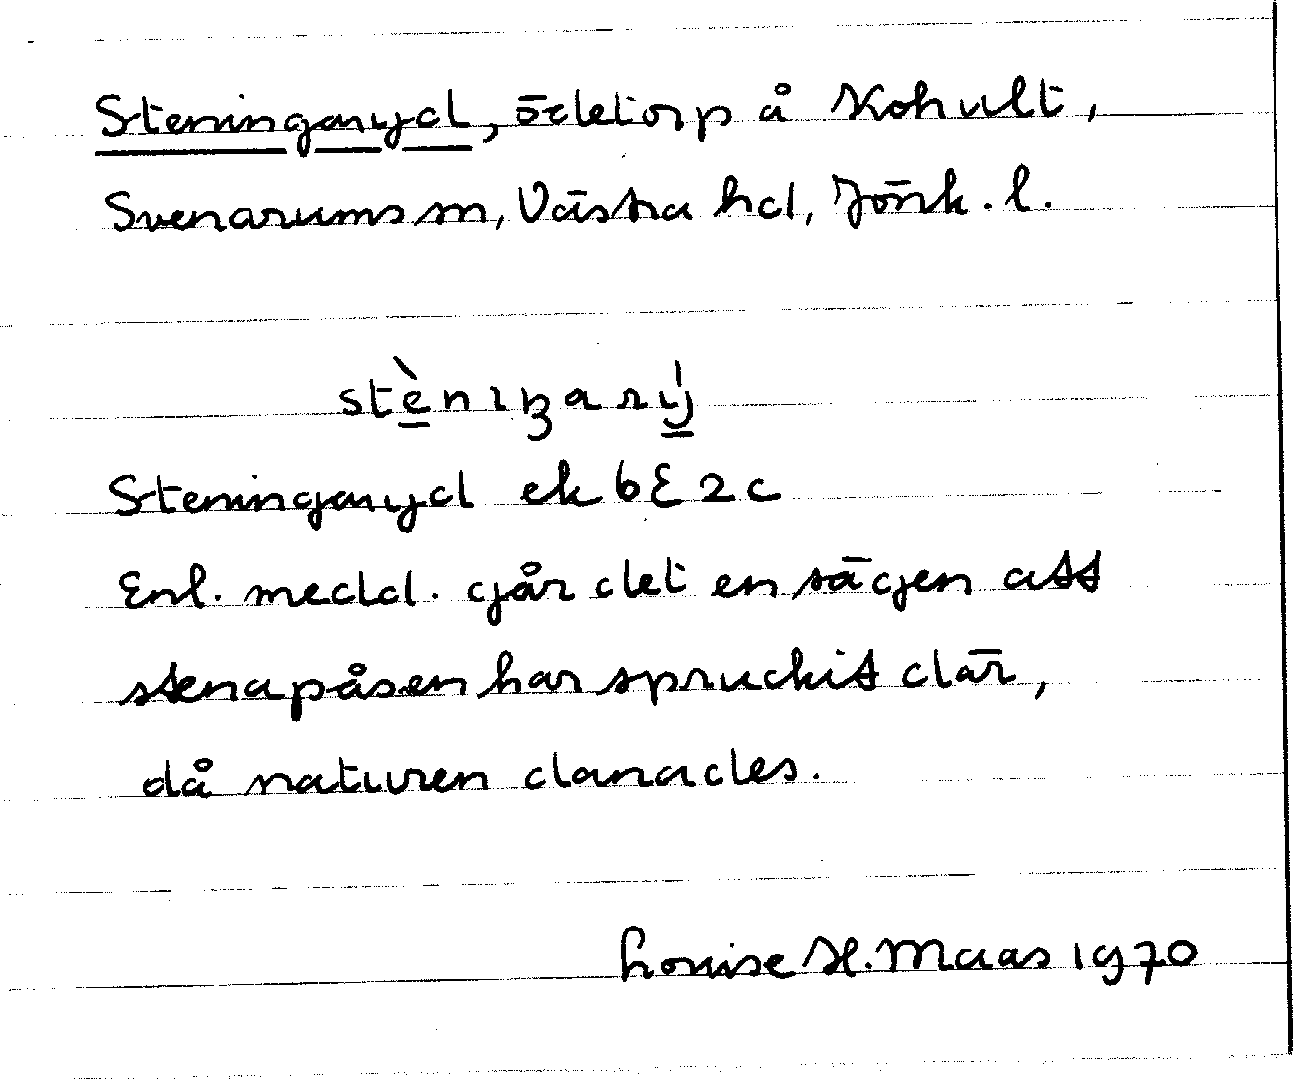 Steningaryd, ödetorp å Kohult,
Svenarums sn, Västra hd, Jönk. l.
stèniŋarý
Steningaryd ek 6E2c
Enl. medd. går det en sägen att
stenapåsen har spruckit där,
då naturen danades.
Louise H. Maas 1970